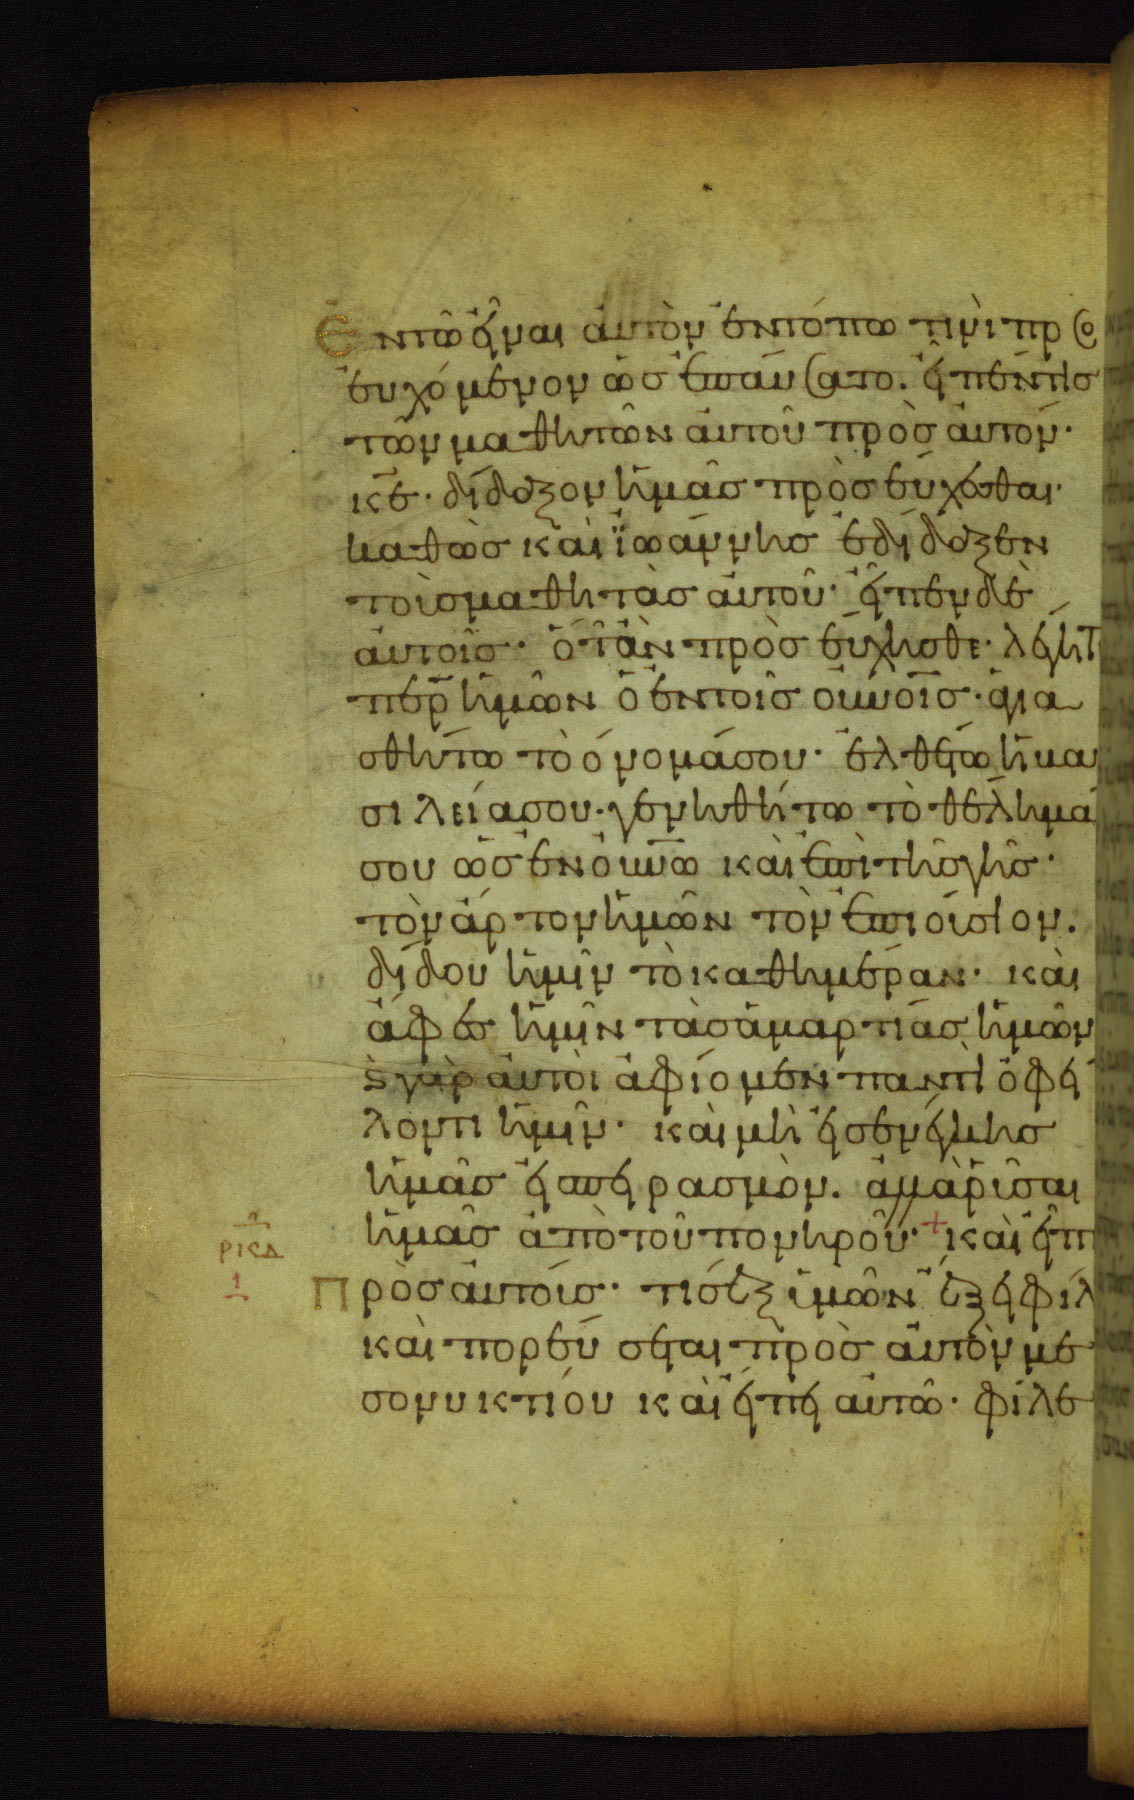 Ἐν τῶ εἶναι αὐτὸν ἐν τόπω τινὶ προσ
ευχόμενον ὡς ἐπαύσατο. εἶπέν τις
τῶν μαθητῶν αὐτοῦ πρὸς αὐτόν·
κε̅· δίδαξον ἡμᾶς προσεύχεσθαι·
καθὼς καὶ ἰωάννης ἐδίδαξεν
τοὺς μαθητὰς αὐτοῦ· εἶπεν δὲ
αὐτοῖς· ὅταν προσεύχησθε· λέγετ
περ̅ ἡμῶν ὁ ἐν τοῖς οὐνοῖς· ἁγια
σθήτω τὸ ὄνομά σου· ἐλθέτω ἡ βα
σιλεία σου· γενηθήτω τὸ θέλημά
σου ὡς ἐν οὐνῶ καὶ ἐπὶ τῆς γῆς·
τὸν ἄρτον ἡμῶν τὸν ἐπιούσιον.
δίδου ἡμῖν τὸ καθημέραν· καὶ
ἄφες ἡμῖν τὰς ἁμαρτίας ἡμῶν
ϗ γὰρ αὐτοὶ ἀφίομεν παντὶ ὀφεί
λοντι ἡμῖν· καὶ μὴ εἰσενέγκης
ἡμᾶς εἰς πειρασμόν. ἀλλὰ ῥῦσαι
ἡμᾶς ἀπὸ τοῦ πονηροῦ· + καὶ εἶπ
ρκδ
Πρὸς αὐτούς· τίς ἐξ ὑμῶν ἕξει φίλ
καὶ πορεύσεται πρὸς αὐτὸν με
σονυκτίου καὶ εἴπη αὐτῶ· φίλε